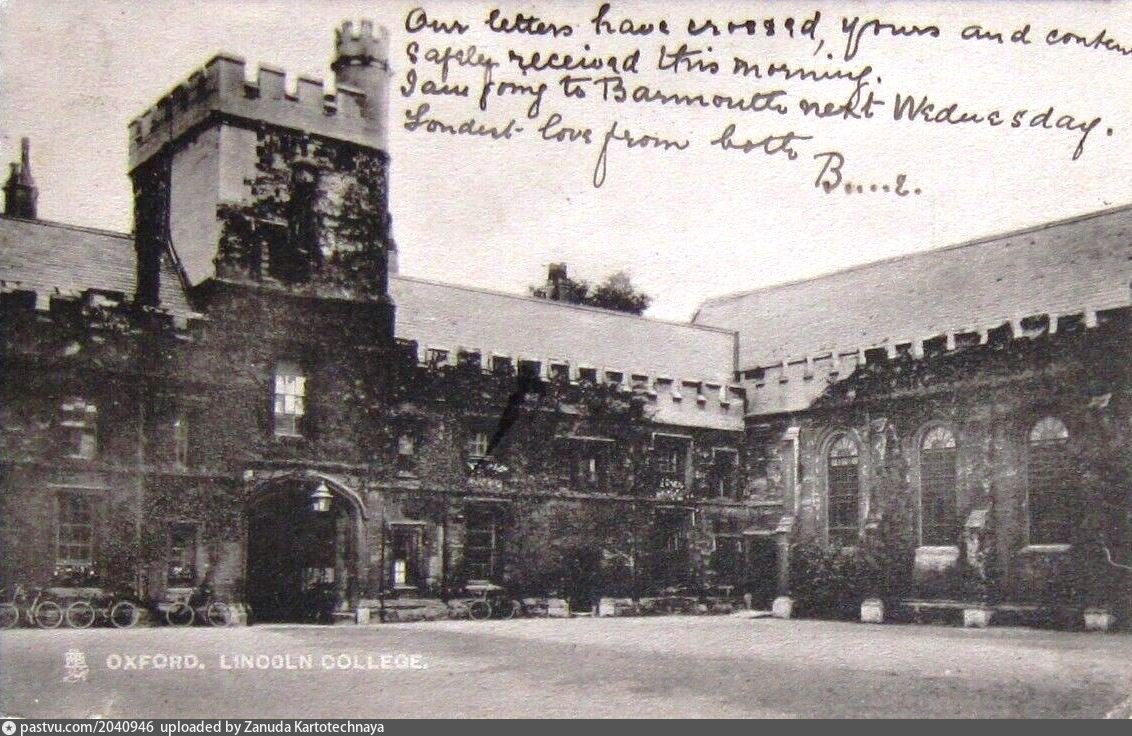 Our letters have crossed, yours and conten
safely received this morning.
I am going to Barmouth next Wednesday.
Fondest love from both
OXFORD. LINCOLN COLLEGE.
pastvu.com/2040946 uploaded by Zanuda Kartotechnaya